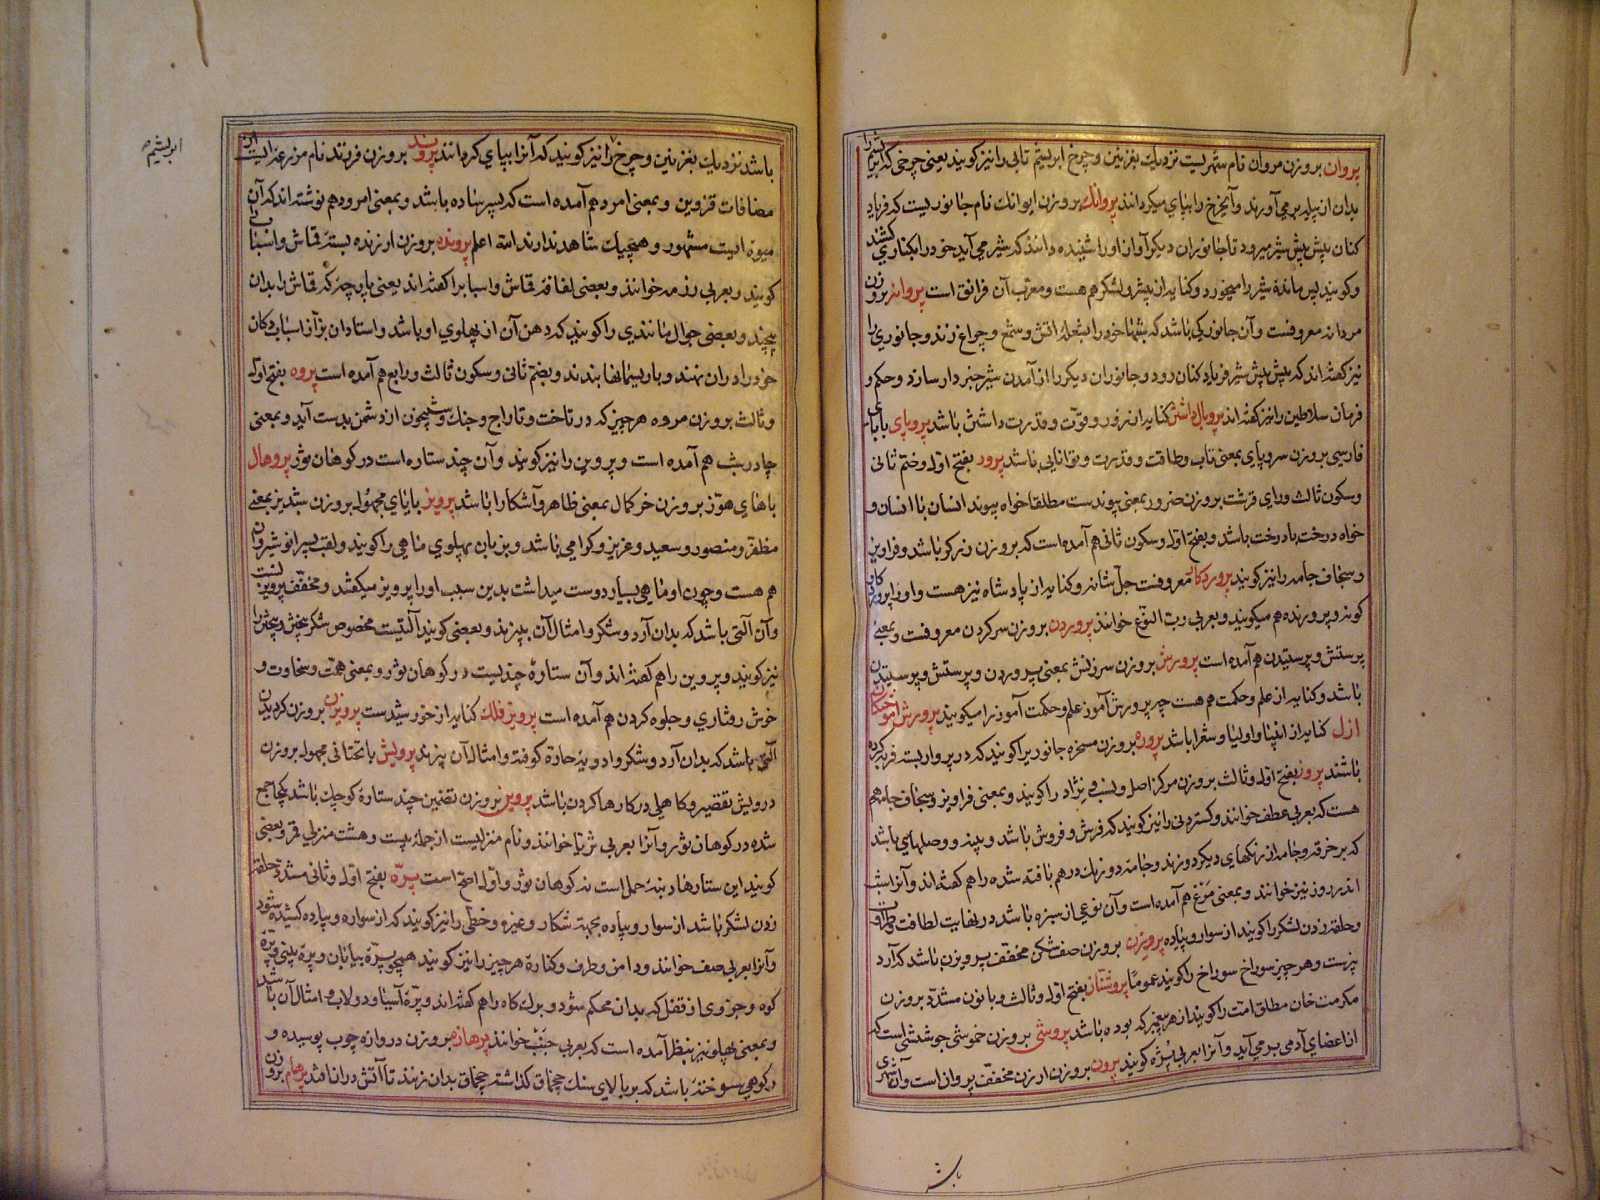 پروان بروزن مروان نام شهریست نزدیك بغزنین و چرخ ابریشم تابی را نیز کویند یعنی چرخی که ابریشم را
بدان از پیله برمی آورند و آن چرخ را بپای میکردانند پروانك بروزن ایوانك نام جانوریست که فریاد
کنان پیش پیش شیر میرود تا جانوران دیکر آواز او را شنیده دانند که شیر می آید خود را بکناری کشند
و کویند پس مانده شیر را میخورد و کنایه از پیشرو لشکر هم هست و معرب آن فرانق است پروانه بروزن
مردانه معروفست و آن جانورکی باشد که شبها خود را بشعله اتش و شمع و چراغ زند و جانوری را
نیز کفته اند که پیش پیش شیر فریاد کنان رود و جانوران دیکر را از آمدن شیر خبردار سازد و حکم و
فرمان سلاطین را نیز کفته اند پروبال داشتن کنایه از زور و قوّت و قدرت داشتن باشد پروپای بابای
فارسی بروزن سروپای بمعنی تاب و طاقت و قدرت و توانایی باشد پرور بفتح اوّل و ضم ثانی
و سکون ثالث و رای قرشت بروزن ضرور بمعنی پیوندست مطلقا خواه پیوند انسان با انسان و
خواه درخت با درخت باشد و بفتح اوّل و سکون ثانی هم آمده است که بروزن زرکر باشد و فراویز
و سجاف جامه را نیز کویند پروردکار معروفست جل شانه و کنایه از پادشاه نیز هست و او را پرورکار
کوند و پرورنده هم میکویند و بعربی ربّ النوع خوانند پروردن بروزن سر کردن معروفست و بمعنی
پرستش و پرستیدن هم آمده است پرورش بروزن سرزنش بمعنی پروردن و پرستش و پرستیدن
باشد و کنایه از علم و حکمت هم هست چه پرورش آموز علم و حکمت آموز را میکویند پرورش آموختکان
ازل کنایه از انبیا و اولیا و شعرا باشد پروره بروزن مسخره جانور پرا کویند که در پروار بسته فربه کرده
باشند پروز بفتح اوّل و ثالث بروزن مرکز اصل و نسب و نژاد را کویند و بمعنی فراویز و سجاف جامه هم
هست که بعربی عطف خوانند و کستردنی را نیز کویند که فرش و فروش باشد و پینه و وصلهای باشد
که بر خرقه و جامه از رنکهای دیکر دوزند و جامه دو رنك در هم بافته شده را هم کفته اند و آنرا شب
اندر روز نیز خوانند و بمعنی مرغ هم آمده است و آن نوعی از سبزه باشد در نهایت لطافت و طراوت
و حلقه زدن لشکر را کویند از سوار و پیاده پروزن بروزن صف شکن مخفف پرویزن باشد که آرد
بیزست و هر چیز سوراخ سوراخ را کویند عموما پروشتاز بفتح اوّل و ثالث و با نون مشدّد بروزن
مکرمت خان مطلق امّت را کویند از هر پیغمبر که بوده باشد پروشی بروزن خموشی جوششی است که
از اعضای آدمی برمی آید و آنرا بعربی بثره کویند پرون بروزن ارزن مخفّف پروان است و آن شهری
باشد
باشد نزدیك بغزنین و چرخ را نیز کویند که آنرا بپای کردانند پروند بروزن فرزند نام مزرعه ایست از
مضافات قزوین و بمعنی امرد هم آمده است که پسر ساده باشد و بمعنی امرود هم نوشته اند که آن
میوه ایست مشهور و هیچیك شاهد ندارند الله اعلم پرونده بروزن ارزنده بسته قماش و اسباب را
کویند و بعربی رزمه خوانند و بعضی لفافه قماش و اسباب را کفته اند یعنی پارچه که قماش را بدان
پیچند و بعضی جوال مانندی را کویند که دهن آن از پهلوی او باشد و استادان بزّاز اسباب دکان
خود را در آن نهند و با ریسمانها بندند و بضم ثانی و سکون ثالث و رابع هم آمده است پروه بفتح اوّل
و ثالث بروزن مروه هر چیز که در تاخت و تاراج و جنك و شبیخون از دشمن بدست آید و بمعنی
چادر شب هم آمده است و پروین را نیز کویند و آن چند ستاره است در کوهان ثور پروهال
باهای هوّز بروزن خرکمال بمعنی ظاهر و آشکارا باشد پرویز بایای مجهول بروزن شبدیز بمعنی
مظفّر و منصور و سعید و عزیز و کرامی باشد و بزبان پهلوی ماهی را کویند و لقب پسر انوشیروان
هم هست و چون او ماهی بسیار دوست میداشت بدین سبب او را پرویز میکفتند و مخفّف پرویزنست
و آن آلتی باشد که بدان آرد و شکر و امثال آن بیزند و بعضی کویند آلتیست مخصوص شکر پختن و پختن را
نیز کویند و پروین را هم کفته اند و آن ستارهٔ چندیست در کوهان ثور و بمعنی همّت و سخاوت و
خوش رفتاری و جلوه کردن هم آمده است پرویز فلك کنایه از خورشیدست پرویزن بروزن کردیدن
آلتی باشد که بدان آرد و شکر و ادویهٔ حارهٔ کوفته و امثال آن بیزند پرویش با تحتانی مجهول بروزن
درویش تقصیر و کاهلی در کارها کردن باشد پروین بروزن تقنین چند ستارهٔ کوچك باشد یکجا جمع
شده در کوهان ثور و آنرا بعربی ثریّا خوانند و نام منزلیست از جملهٔ بیست و هشت منزل قمر و بعضی
کویند این ستارها دنبهٔ حمل است نه کوهان ثور و اوّل اصح است پرّه بفتح اوّل و ثانی مشدّد حلقه
زدن لشکر باشد از سوار و پیاده بجهة شکار و غیره و خطّی را نیز کویند که از سواره و پیاده کشیده شود
و آنرا بعربی صف خوانند و دامن و طرف و کنارهٔ هر چیز را نیز کویند همچو پرّهٔ بیابان و پرهٔ بینی و پرهٔ
کوه و جزوی از قفل که بدان محکم شود و برك کاه را هم کفته اند و پرّهٔ آسیا و دولاب و امثال آن باشد
و بمعنی پهلو نیز بنظر آمده است که بعربی جنب خوانند پرهازه بروزن دروازه چوب پوسیده و
رکوهی سوخته باشد که بر بالای سنك چخماق کذاشته چخماق بدان زنند تا آتش در ان افتد پرهام بروزن
ابریشم